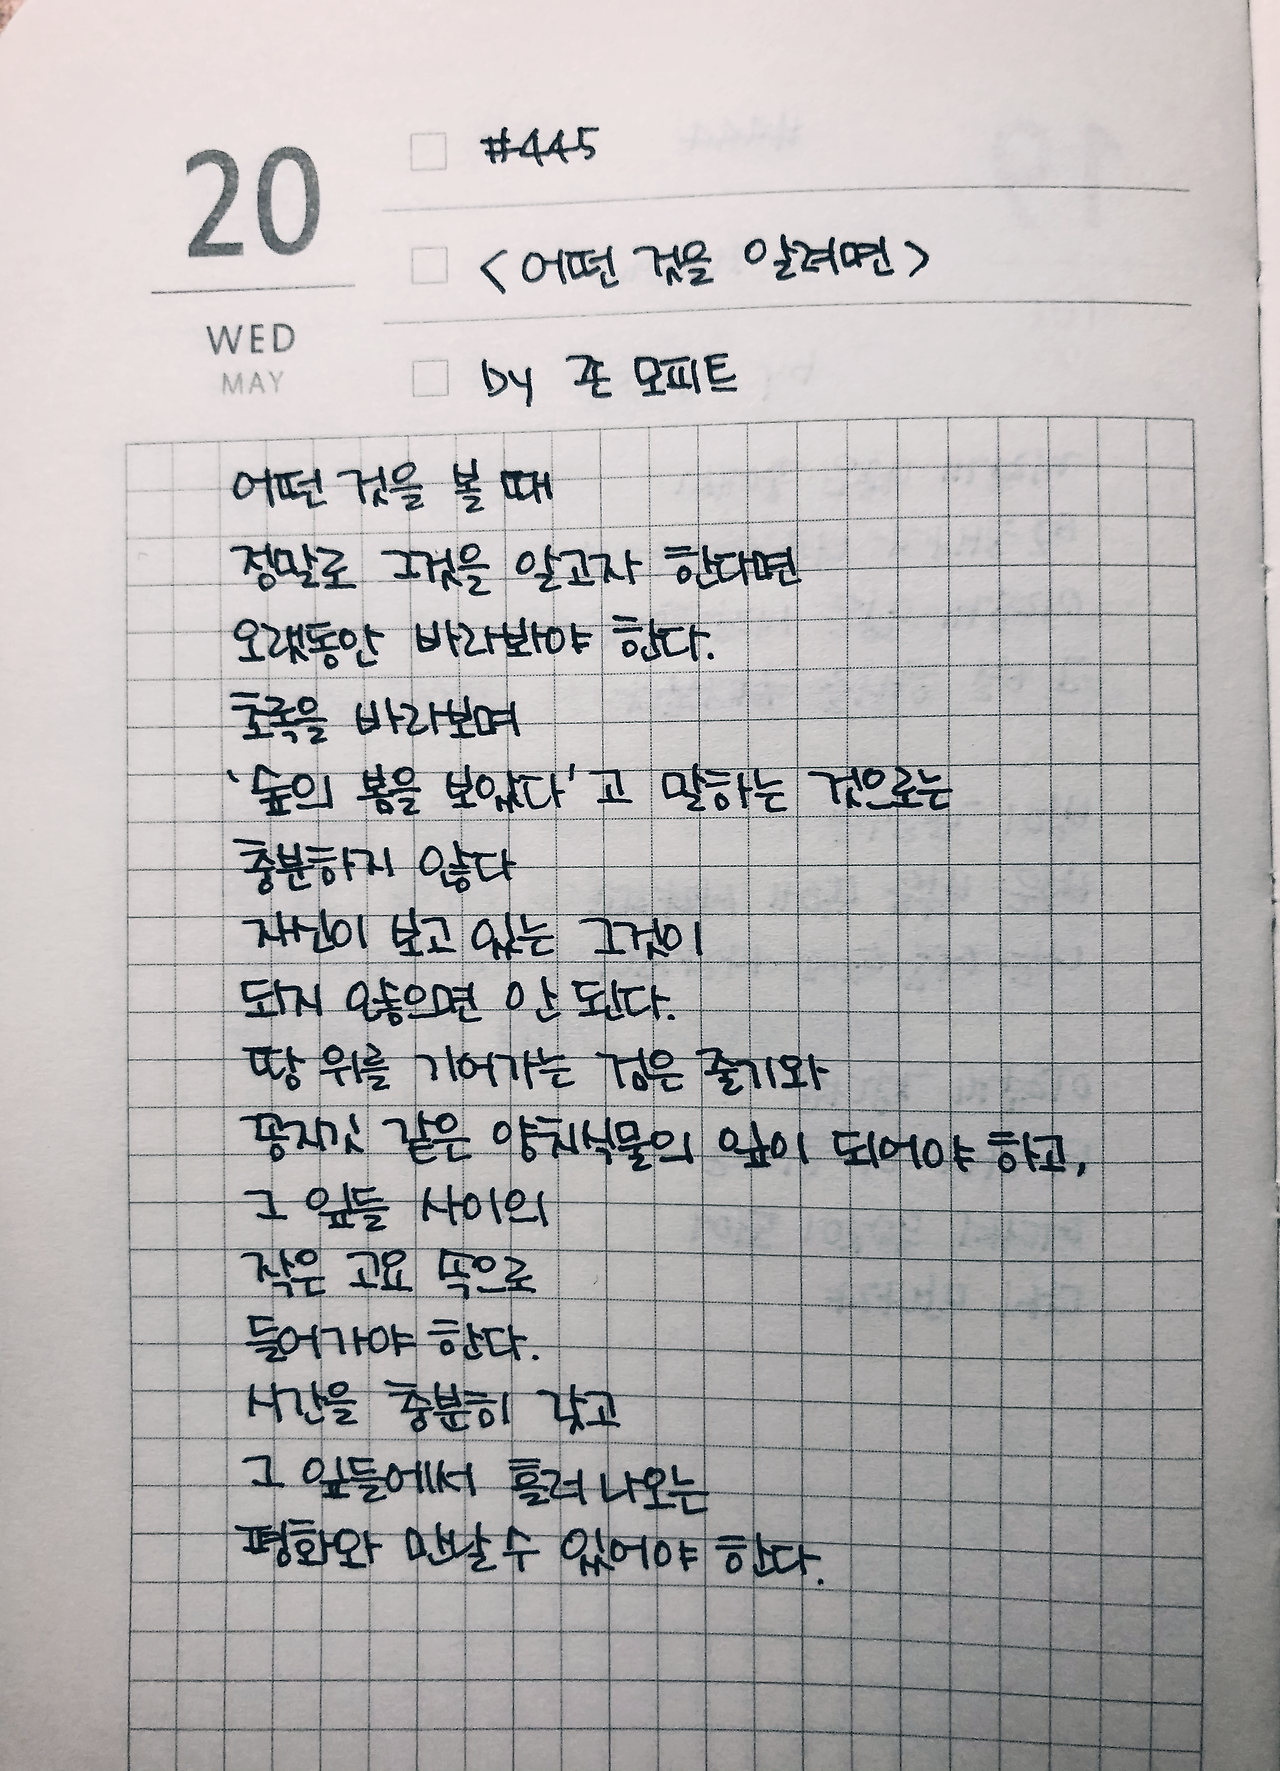 20
WED
MAY
#445
<어떤 것을 알려면>
by 존 모피트
어떤 것을 볼 때
정말로 그것을 알고자 한다면
오랫동안 바라봐야 한다.
초록을 바라보며
'숲의 봄을 보았다'고 말하는 것으로는
충분하지 않다
자신이 보고 있는 그것이
되지 않으면 안 된다.
땅 위를 기어가는 검은 줄기와
꽁지깃 같은 양치식물의 잎이 되어야 하고,
그 잎들 사이의
작은 고요 속으로
들어가야 한다.
시간을 충분히 갖고
그 잎들에서 흘러 나오는
평화와 만날 수 있어야 한다.